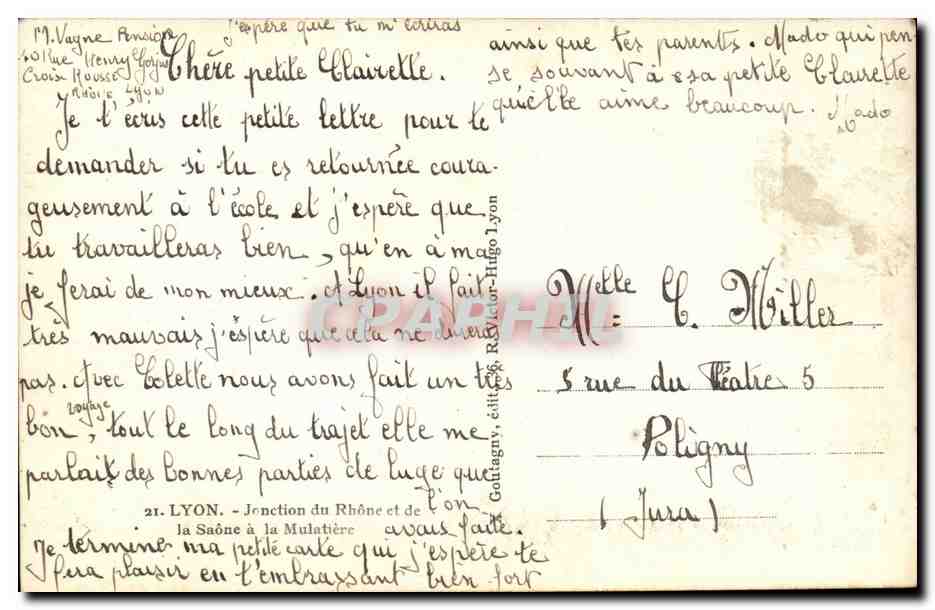 M. Vagne Pension
40 Rue Henry Gorjus
Croix Rousse
Rhône Lyon
j'espère que tu m'ecriras
Chère petite Clairette.
Je t'écris cette petite lettre pour te
demander si tu es retournée coura-
geusement à l'école et j'espère que
tu travailleras bien, qu'en à moi
je ferai de mon mieux. A Lyon il fait
très mauvais j'éspère que cela ne durera
pas. Avec Colette nous avons fait un très
bon voyage, tout le long du trajet elle me
parlait des bonnes parties de luge que
l'on
avais faite.
Je termine ma petite carte qui j'espère te
fera plaisir en t'embrassant bien fort
ainsi que tes parents. Mado qui pen-
se souvant à sa petite Clairette
qu'elle aime beaucoup. Mado
21. LYON. - Jonction du Rhône et de
la Saône à la Mulatière
Goutagny, édit., 36, R. Victor-Hugo Lyon
CPAPHIL
Melle C. Miller
5 rue du Théatre 5
Poligny
(Jura)